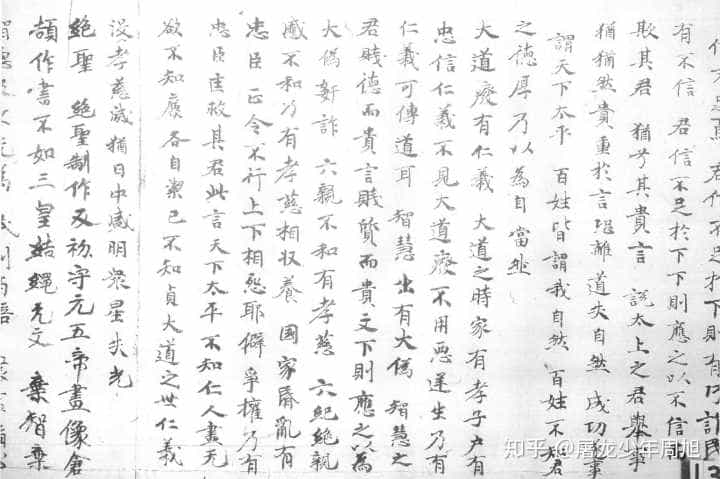 君信不足於下下則有巧詐民
有不信 君信不足於下下則應之以不信而
欺其君 猶兮其貴言 說太上之君舉事
猶猶然貴重於言恐離道失自然 成功事
謂天下太平 百姓皆謂我自然 百姓不知君
之德厚乃以為自當然
大道廢有仁義 大道之時家有孝子户有
忠信仁義不見大道廢不用惡逆生乃有
仁義可傳道耳 智慧出有大偽 智慧之
君賤德而貴言賤質而貴文下則應之以為
大偽姧詐 六親不和有孝慈 六紀絶親
戚不和乃有孝慈相収養 國家昏亂有
忠臣 正令不行上下相怨耶僻爭權乃有
忠臣匡救其君此言天下太平不知仁人盡无
欲不知廉各自潔己不知貞大道之世仁義
没孝慈滅猶日中盛明衆星失光
絶聖 絶聖制作反初守元五帝畫像倉
頡作書不如三皇結繩无文 棄智棄
知乎 @屠龙少年周旭
13